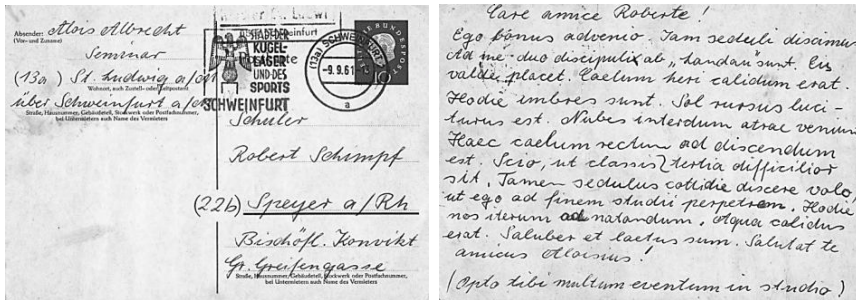 Absender: Alois Albrecht
(Vor- und Zuname)
Seminar
(13a) St. Ludwig a/M
Wohnort, auch Zustell- oder Leitpostamt
über Schweinfurt a/M
Straße, Hausnummer, Gebäudeteil, Stockwerk oder Postfachnummer,
bei Untermietern auch Name des Vermieters
STADT DER
KUGEL-
LAGER
UND DES
SPORTS
SCHWEINFURT
(13a) SCHWEINFURT
-9.9.61
a
DEUTSCHE BUNDESPOST
10
Schüler
Robert Schimpf
(22b) Speyer a/Rh
Bischöfl. Konvikt
Gr. Greifengasse
Straße, Hausnummer, Gebäudeteil, Stockwerk oder Postfachnummer,
bei Untermietern auch Name des Vermieters
Care amice Roberte!
Ego bonus advenio. Iam seduli discimus
Ad me duo discipuli ab "Landau" sunt. Eis
valde placet. Caelum heri calidum erat.
Hodie imbres sunt. Sol rursus luci-
turus est. Nubes interdum atrae veniunt
Haec caelum rectum ad discendum
est. Scio, ut classis tertia difficilior
sit. Tamen sedulus cottidie discere volo,
ut ego ad finem studii perpetrem. Hodie
nos iterum ad natandum. Aqua calidus
erat. Saluber et laetus sum. Salutat te
amicus Aloisius!
(Opto tibi multum eventum in studio!)